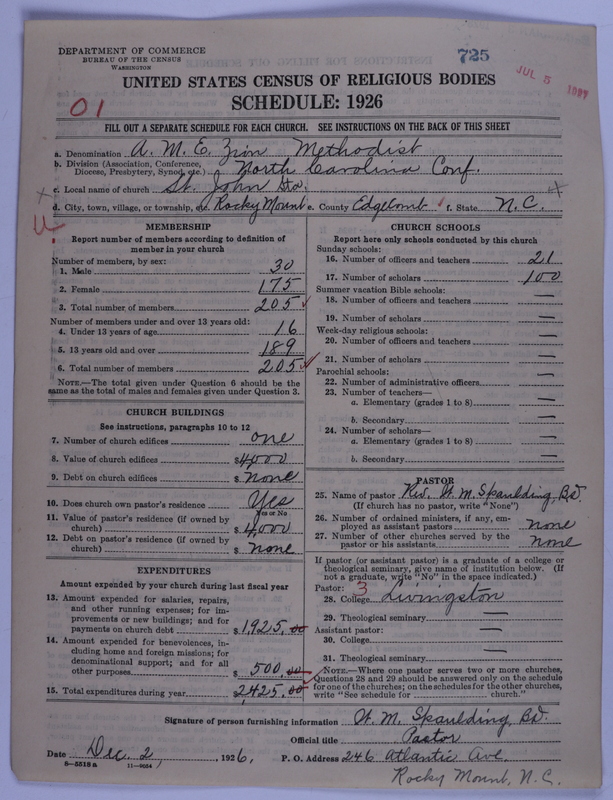 DEPARTMENT OF COMMERCE
BUREAU OF THE CENSUS
WASHINGTON
725
JUL 5 1927
UNITED STATES CENSUS OF RELIGIOUS BODIES
SCHEDULE: 1926
01
FILL OUT A SEPARATE SCHEDULE FOR EACH CHURCH. SEE INSTRUCTIONS ON THE BACK OF THIS SHEET
a. Denomination A. M. E. Zion Methodist
b. Division (Association, Conference, Diocese, Presbytery, Synod, etc.) North Carolina Conf.
c. Local name of church St. John
d. City, town, village, or township, etc. Rocky Mount e. County Edgecomb f. State N.C.
MEMBERSHIP
Report number of members according to definition of member in your church
Number of members, by sex:
1. Male 30
2. Female 175
3. Total number of members 205
Number of members under and over 13 years old:
4. Under 13 years of age 16
5. 13 years old and over 189
6. Total number of members 205
NOTE.—The total given under Question 6 should be the same as the total of males and females given under Question 3.
CHURCH BUILDINGS
See instructions, paragraphs 10 to 12
7. Number of church edifices one
8. Value of church edifices $4,000
9. Debt on church edifices $ none
10. Does church own pastor's residence Yes
Yes or No
11. Value of pastor's residence (if owned by church) $4,000
12. Debt on pastor's residence (if owned by church) $ none
EXPENDITURES
Amount expended by your church during last fiscal year
13. Amount expended for salaries, repairs, and other running expenses; for improvements or new buildings; and for payments on church debt $1,925.00
14. Amount expended for benevolences, including home and foreign missions; for denominational support; and for all other purposes $500.00
15. Total expenditures during year $2425.00
CHURCH SCHOOLS
Report here only schools conducted by this church
Sunday schools:
16. Number of officers and teachers 21
17. Number of scholars 100
Summer vacation Bible schools:
18. Number of officers and teachers —
19. Number of scholars —
Week-day religious schools:
20. Number of officers and teachers —
21. Number of scholars —
Parochial schools:
22. Number of administrative officers —
23. Number of teachers—
a. Elementary (grades 1 to 8) —
b. Secondary —
24. Number of scholars—
a. Elementary (grades 1 to 8) —
b. Secondary —
PASTOR
25. Name of pastor Rev. W. M. Spaulding BD.
(If church has no pastor, write "None")
26. Number of ordained ministers, if any, employed as assistant pastors none
27. Number of other churches served by the pastor or his assistants none
If pastor (or assistant pastor) is a graduate of a college or theological seminary, give name of institution below. (If not a graduate, write "No" in the space indicated.)
Pastor: 3
28. College Livingston
29. Theological seminary —
Assistant pastor:
30. College —
31. Theological seminary —
NOTE.—Where one pastor serves two or more churches, Questions 28 and 29 should be answered only on the schedule for one of the churches; on the schedules for the other churches, write "See schedule for church."
Signature of person furnishing information W. M. Spaulding BD.
Official title Pastor
Date Dec. 2, 1926, P. O. Address 246 Atlantic Ave.
8-5518 a 11-9054 Rocky Mount, N.C.